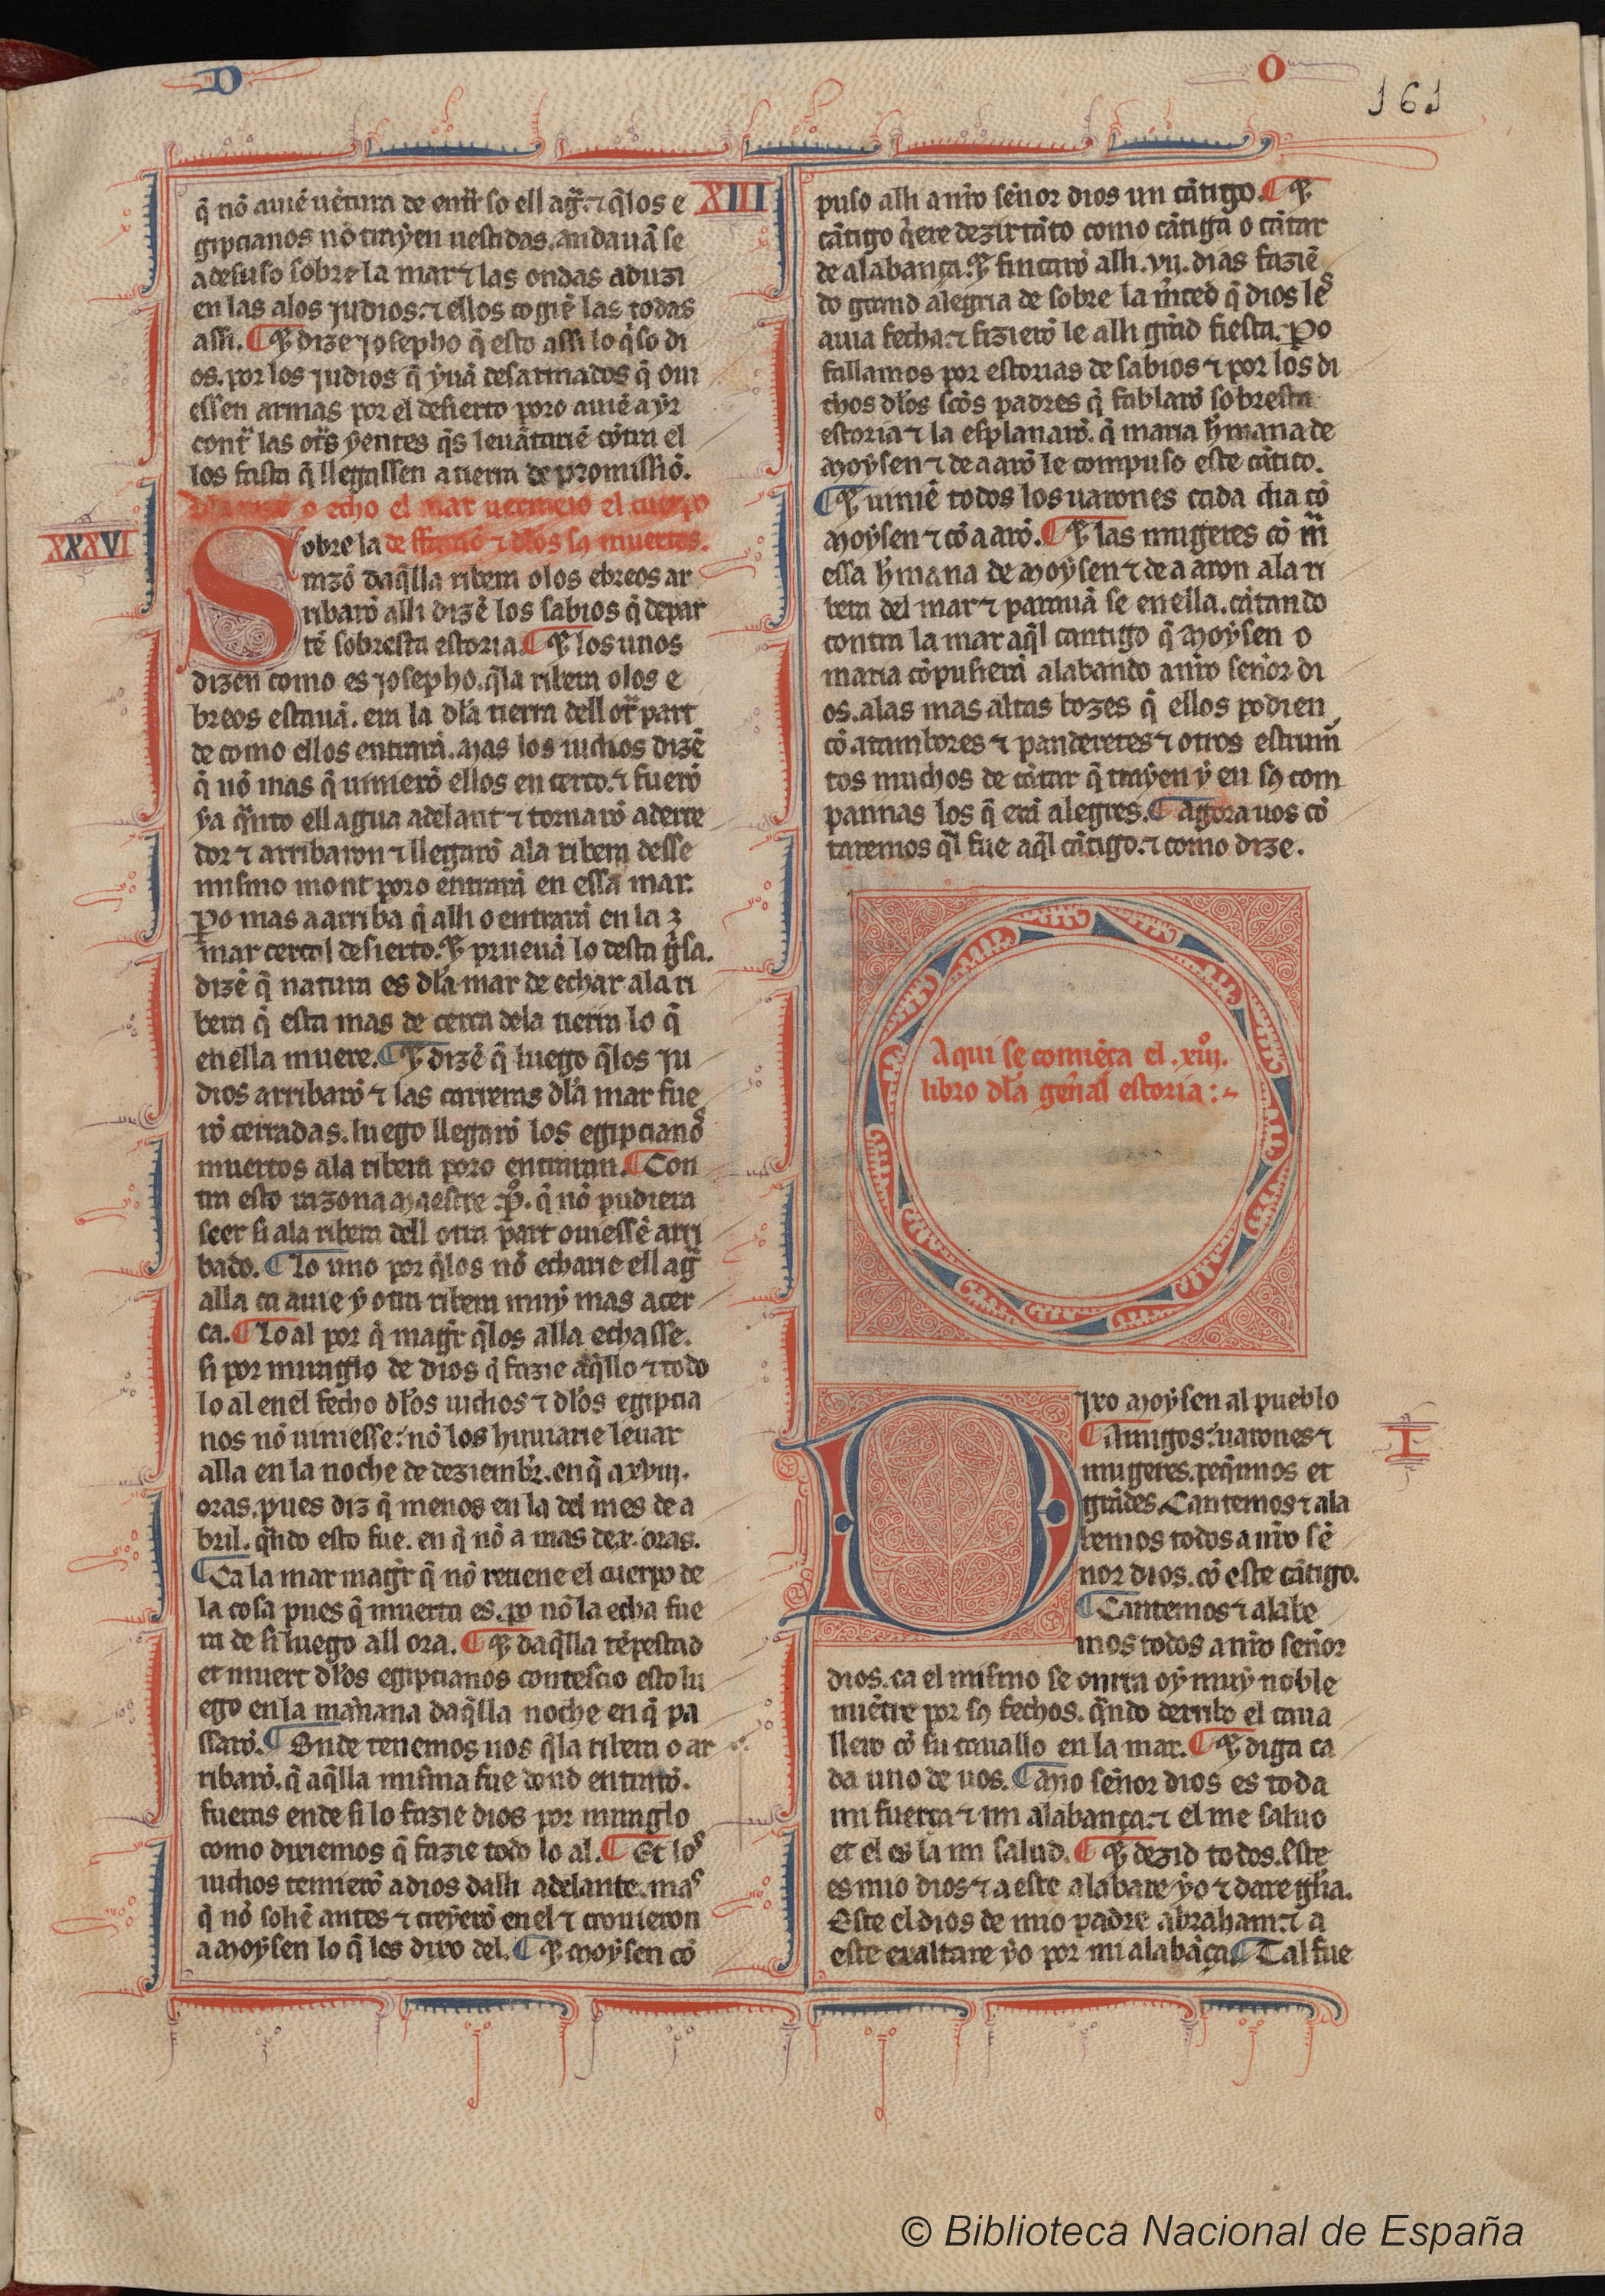 D
O
161
XIII
q̃ nõ auiẽ uẽtura de entr̃ so ell agr̃. ⁊ q̃los e
gipcianos nõ trayen uestidas. andauã se
adesuso sobre la mar ⁊ las ondas aduzi
en las alos judios. ⁊ ellos cogiẽ las todas
assi. ¶ Et dize josepho q̃ esto assi lo q̃so di
os. por los judios q̃ yuã desarmados q̃ oui
essen armas por el desierto poro auiẽ a yr
contr̃ las otr̃s yentes q̃s leuãtariẽ cõtra el
los fasta q̃ llegassen a tierra de promissiõ.
o echo el mar uermeio el cuerpo
de ffaraõ ⁊ dlos sos muertos.
XXXVI
Sobre la
razõ daq̃lla ribera o los ebreos ar
ribarõ alli dizẽ los sabios q̃ depar
tẽ sobresta estoria. ¶ Et los unos
dizen como es josepho. q̃la ribera o los e
breos estauã. era la dla tierra dell otr̃ part
de como ellos entrarã. Mas los iudios dizẽ
q̃ nõ mas q̃ uinierõ ellos en cerco. ⁊ fuerõ
ya q̃nto ell agua adelant ⁊ tornarõ aderre
dor ⁊ arribaron ⁊ llegarõ ala ribera desse
mismo mont poro entrarã en essa mar.
Po mas a arriba q̃ alli o entrarã en la
mar cercal desierto. Et prueuã lo desta gisa.
dizẽ q̃ natura es dla mar de echar ala ri
bera q̃ esta mas de cerca dela tierra lo q̃
enella muere. ¶ Et dizẽ q̃ luego q̃los ju
dios arribarõ ⁊ las carreras dla mar fue
rõ cerradas. luego llegarõ los egipcianos
muertos ala ribera poro entraran. ¶ Con
tra esto razona Maestre .P. q̃ nõ pudiera
seer si ala ribera dell otra part ouiessẽ arri
bado. ¶ Lo uno por q̃los nõ echarie ell ag̃
alla ca auie y otra ribera muy mas acer
ca. ¶ Lo al por q̃ magr̃ q̃los alla echasse.
si por miraglo de dios q̃ fazie aq̃llo ⁊ todo
lo al enel fecho dlos iudios ⁊ dlos egipcia
nos nõ uiniesse. nõ los huuiarie leuar
alla en la noche de deziembr̃. en q̃ a xviij.
oras. pues diz q̃ menos en la del mes de a
bril. q̃ndo esto fue. en q̃ nõ a mas de .x. oras.
¶ Ca la mar magr̃ q̃ nõ retiene el cuerpo de
la cosa pues q̃ muerta es. po nõ la echa fue
ra de si luego all ora. ¶ Et daq̃lla tẽpestad
et muert dlos egipcianos contescio esto lu
ego en la mañana daq̃lla noche en q̃ pa
ssarõ. ¶ Onde tenemos nos q̃la ribera o ar
ribarõ. q̃ aq̃lla misma fue dond entrarõ.
fueras ende si lo fazie dios por miraglo
como diriemos q̃ fazie todo lo al. ¶ Et los
iudios temierõ a dios dalli adelante. mas
q̃ nõ soliẽ antes ⁊ creyerõ en el ⁊ crouieron
a Moysen lo q̃ les dixo del. ¶ Et Moysen cõ
puso alli a nr̃o señor dios un cãtigo. ¶ Et
cãtigo q̃ere dezir tãto como cãtiga o cãtar
de alabança. Et fincarõ alli .vij. dias faziẽ
do grand alegria de sobre la mr̃ced q̃ dios les
auia fecha. ⁊ fizierõ le alli grãd fiesta. Po
fallamos por estorias de sabios ⁊ por los di
chos dlos scõs padres q̃ fablarõ sobresta
estoria ⁊ la esplanarõ. q̃ maria hr̃mana de
Moysen ⁊ de aarõ le compuso este cãtico.
¶ Et uiniẽ todos los uarones cada dia cõ
Moysen ⁊ cõ aarõ. ¶ Et las mugeres cõ mr̃
essa hr̃mana de Moysen ⁊ de aaron ala ri
bera del mar ⁊ parauã se en ella. cãtando
contra la mar aq̃l cantigo q̃ Moysen o
maria cõpusierã alabando a nr̃o señor di
os. alas mas altas bozes q̃ ellos podien
cõ atambores ⁊ panderetes ⁊ otros estrumẽ
tos muchos de cãtar q̃ trayen y en sos com
pannas los q̃ erã alegres. ¶ Agora uos cõ
taremos q̃l fue aq̃l cãtigo. ⁊ como dize.
Aqui se comiẽça el .xiijº.
libro dla gen̄al estoria :~
I
Dixo Moysen al pueblo
¶ Amigos. uarones ⁊
mugeres. peq̃nnos et
grãdes. Cantemos ⁊ ala
bemos todos a nr̃o sẽ
nor dios. cõ este cãtigo.
¶ Cantemos ⁊ alabe
mos todos a nr̃o señor
dios. ca el mismo se onrra oy muy noble
miẽtre por sos fechos. q̃ndo derribo el caua
llero cõ su cauallo en la mar. ¶ Et diga ca
da uno de uos. ¶ Mio señor dios es toda
mi fuerça ⁊ mi alabança. ⁊ el me saluo
et el es la mi salud. ¶ Et dezid todos. Este
es mio dios ⁊ a este alabare yo ⁊ dare glĩa.
Este el dios de mio padre abraham. ⁊ a
este exaltare yo por mi alabãça. ¶ Tal fue
© Biblioteca Nacional de España